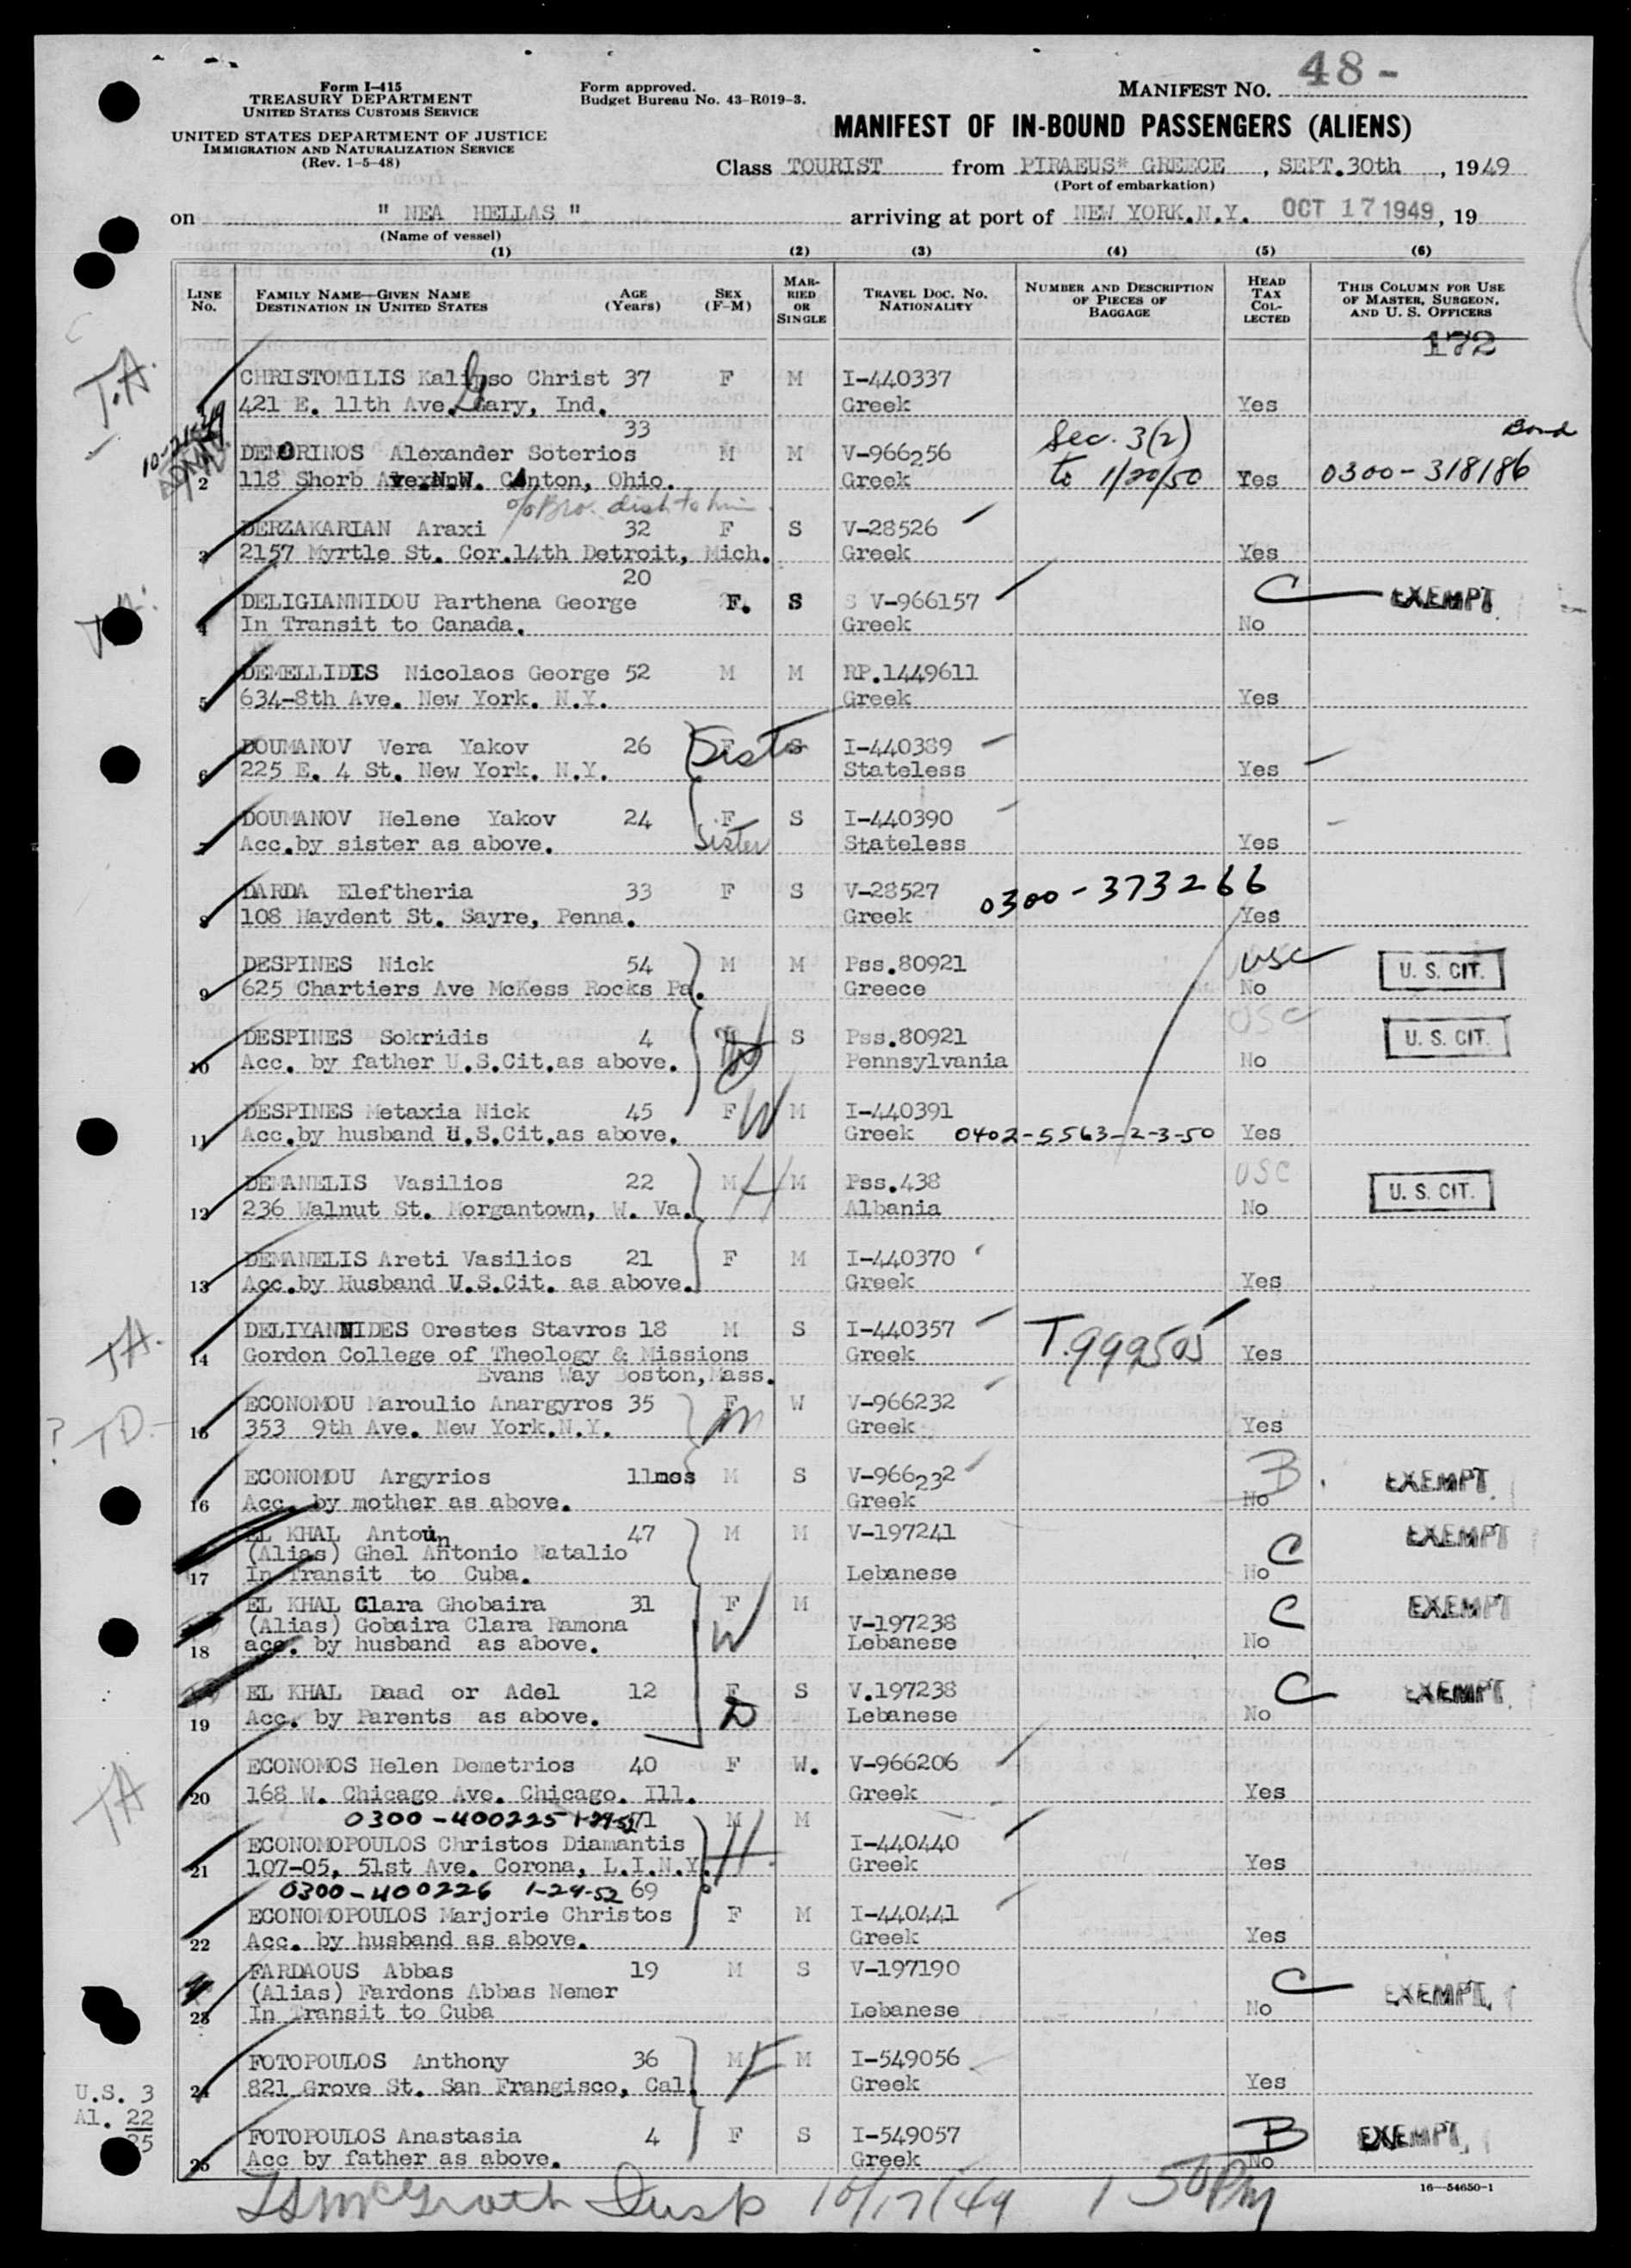 48 -
Form I-415
TREASURY DEPARTMENT
UNITED STATES CUSTOMS SERVICE
UNITED STATES DEPARTMENT OF JUSTICE
IMMIGRATION AND NATURALIZATION SERVICE
(Rev. 1-5-48)
Form approved.
Budget Bureau No. 43-R019-3.
MANIFEST NO.
MANIFEST OF IN-BOUND PASSENGERS (ALIENS)
Class TOURIST from PIRAEUS* GREECE, SEPT.30th, 1949
(Port of embarkation)
on " NEA HELLAS " arriving at port of NEW YORK.N.Y. OCT 17 1949, 19
(Name of vessel)
(1) (2) (3) (4) (5) (6)
LINE NO. FAMILY NAME—GIVEN NAME DESTINATION IN UNITED STATES AGE (Years) SEX (F-M) MARRIED OR SINGLE TRAVEL DOC. NO. NATIONALITY NUMBER AND DESCRIPTION OF PIECES OF BAGGAGE HEAD TAX COLLECTED THIS COLUMN FOR USE OF MASTER, SURGEON, AND U. S. OFFICERS
172
T.A.
CHRISTOMILIS Kalipso Christ 37 F M I-440337
421 E. 11th Ave. Gary, Ind. Greek Yes
33 Sec. 3(2) Bond
DEMORINOS Alexander Soterios M M V-966256
2 118 Shorb Ave.N.W. Canton, Ohio. Greek to 1/20/50 Yes 0300-318186
c/o Bro. dish to him
DERZAKARIAN Araxi 32 F S V-28526
3 2157 Myrtle St. Cor.14th Detroit, Mich. Greek Yes
20
DELIGIANNIDOU Parthena George F. S V-966157 C EXEMPT
4 In Transit to Canada. Greek No
DEMELLIDIS Nicolaos George 52 M M RP.1449611
5 634-8th Ave. New York. N.Y. Greek Yes
DOUMANOV Vera Yakov 26 Sister S I-440389
6 225 E. 4 St. New York. N.Y. Stateless Yes
DOUMANOV Helene Yakov 24 F S I-440390
7 Acc.by sister as above. Sister Stateless Yes
DARDA Eleftheria 33 F S V-28527 0300-373266
8 108 Haydent St. Sayre, Penna. Greek Yes
DESPINES Nick 54 M M Pss.80921 USC U. S. CIT.
9 625 Chartiers Ave McKess Rocks Pa. Greece No
DESPINES Sokridis 4 S Pss.80921 USC U. S. CIT.
10 Acc. by father U.S.Cit.as above. Pennsylvania No
DESPINES Metaxia Nick 45 F W M I-440391
11 Acc.by husband U.S.Cit.as above. Greek 0402-5563-2-3-50 Yes
DEMANELIS Vasilios 22 M H M Pss.438 USC U. S. CIT.
12 236 Walnut St. Morgantown, W. Va. Albania No
DEMANELIS Areti Vasilios 21 F M I-440370
13 Acc.by Husband U.S.Cit. as above. Greek Yes
T.A.
DELIYANNIDES Orestes Stavros 18 M S I-440357 T.999505
14 Gordon College of Theology & Missions Greek Yes
Evans Way Boston, Mass.
? TD.
ECONOMOU Maroulio Anargyros 35 F M W V-966232
15 353 9th Ave. New York.N.Y. Greek Yes
ECONOMOU Argyrios 11mos M S V-966232 B. EXEMPT
16 Acc. by mother as above. Greek No
EL KHAL Antoun 47 M M V-197241 EXEMPT
(Alias) Ghel Antonio Natalio C
17 In Transit to Cuba. Lebanese No
EL KHAL Clara Ghobaira 31 F M C EXEMPT
(Alias) Gobaira Clara Ramona W V-197238
18 acc. by husband as above. Lebanese No
EL KHAL Daad or Adel 12 F S V.197238 C EXEMPT
19 Acc. by Parents as above. D Lebanese No
TA
ECONOMOS Helen Demetrios 40 F W. V-966206
20 168 W. Chicago Ave. Chicago. Ill. Greek Yes
0300-400225 1-29-52 71 M M
ECONOMOPOULOS Christos Diamantis H I-440440
21 107-05, 51st Ave. Corona, L.I.N.Y. Greek Yes
0300-400226 1-29-52 69
ECONOMOPOULOS Marjorie Christos F M I-440441
22 Acc. by husband as above. Greek Yes
FARDAOUS Abbas 19 M S V-197190 C
(Alias) Fardons Abbas Nemer EXEMPT
23 In Transit to Cuba Lebanese No
FOTOPOULOS Anthony 36 M F M I-549056
24 821 Grove St. San Frangisco, Cal. Greek Yes
U.S. 3
Al. 22
25
FOTOPOULOS Anastasia 4 F S I-549057 B EXEMPT
25 Acc by father as above. Greek No
16—54650-1
McGrath Insp 10/17/49 1 50 PM